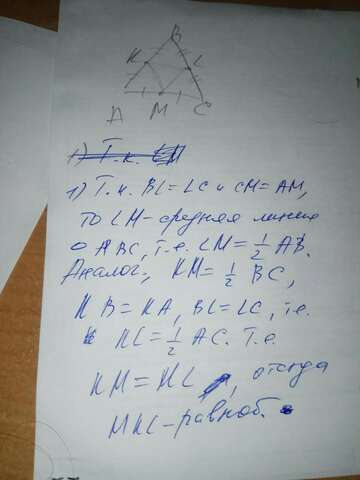 B
K
L
A
M
C
1) Т.к. LM
1) Т.к. BL=LC и CM=AM,
то LM-средняя линия
△ABC, т.е. LM=1/2 AB.
Аналог., KM=1/2 BC,
KB=KA, BL=LC, т.е.
KL=1/2 AC. Т.е.
KM=KL, отсюда
MKL-равноб.